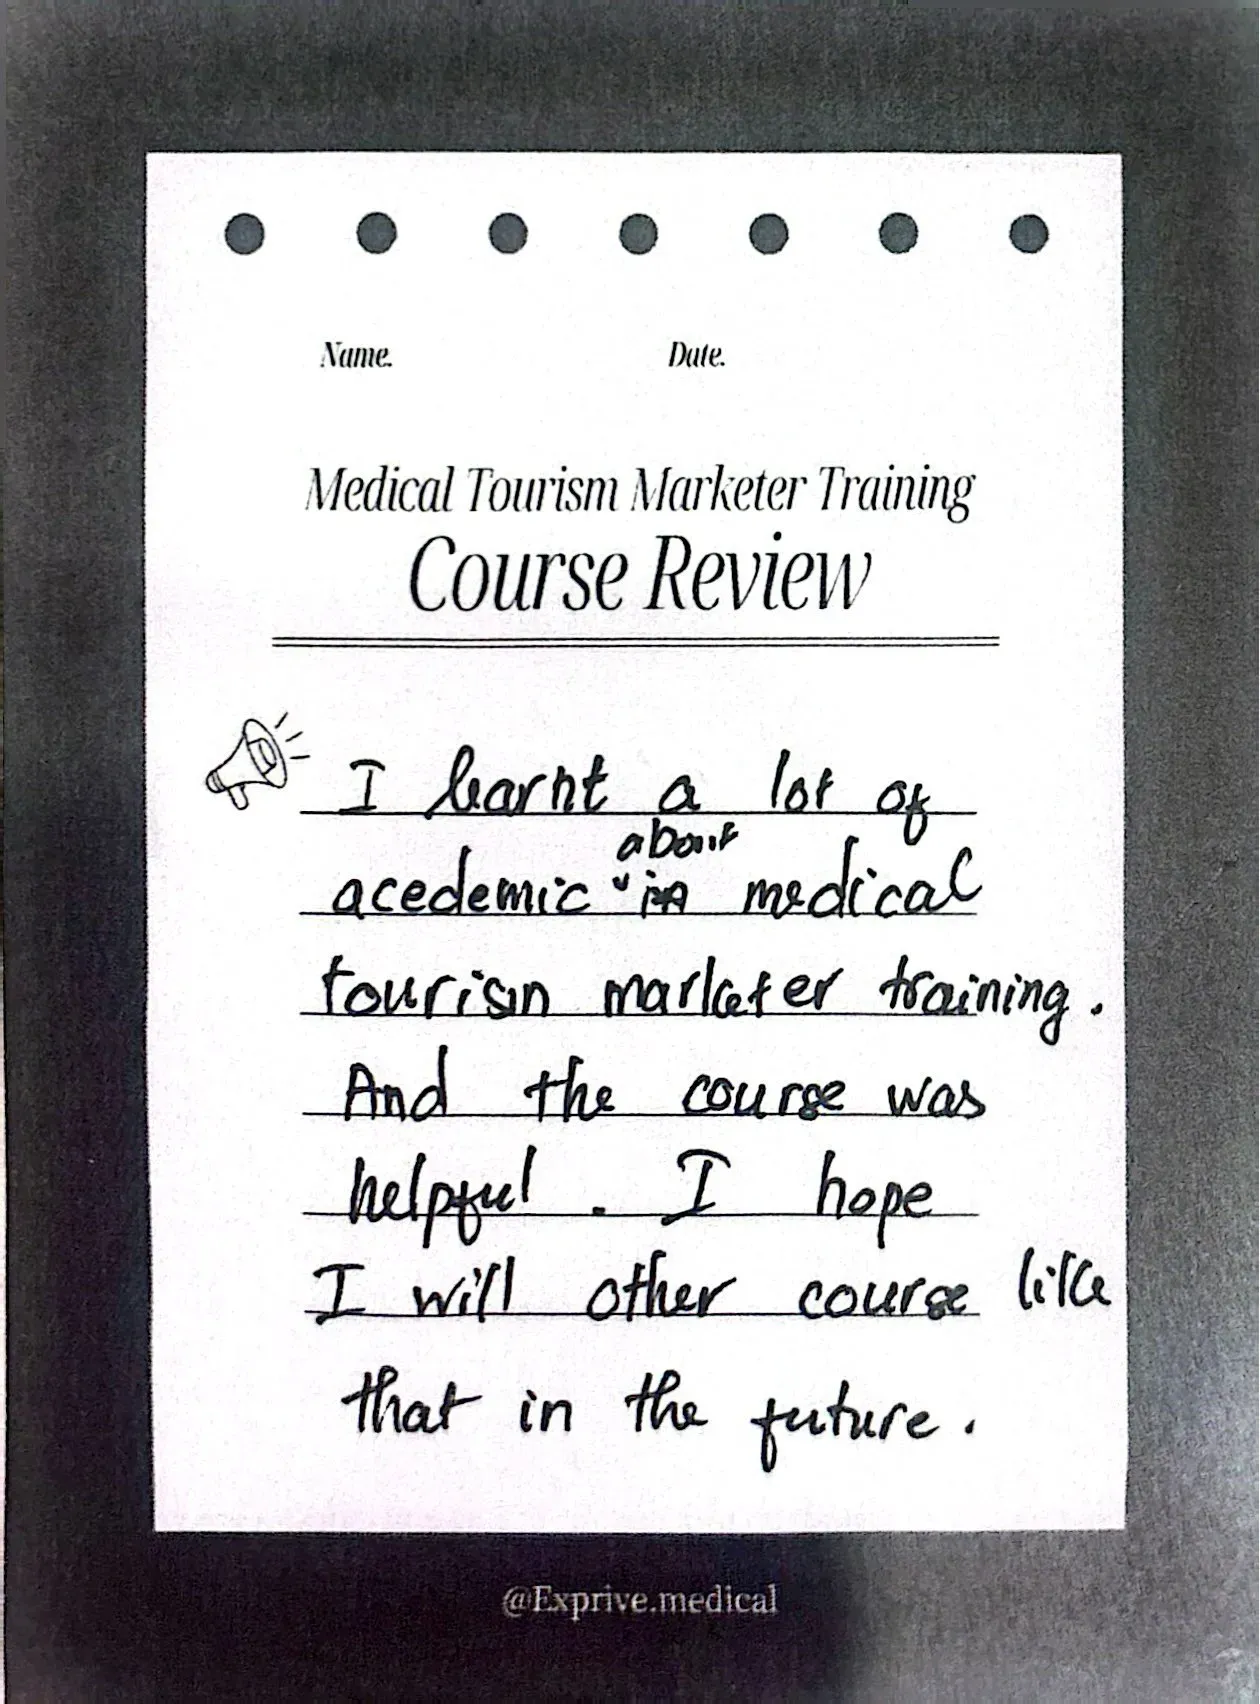 Name. Date.
Medical Tourism Marketer Training
Course Review
I learnt a lot of
about
acedemic ˅ in medical
tourism marketer training.
And the course was
helpful. I hope
I will other course like
that in the future.
@Exprive.medical